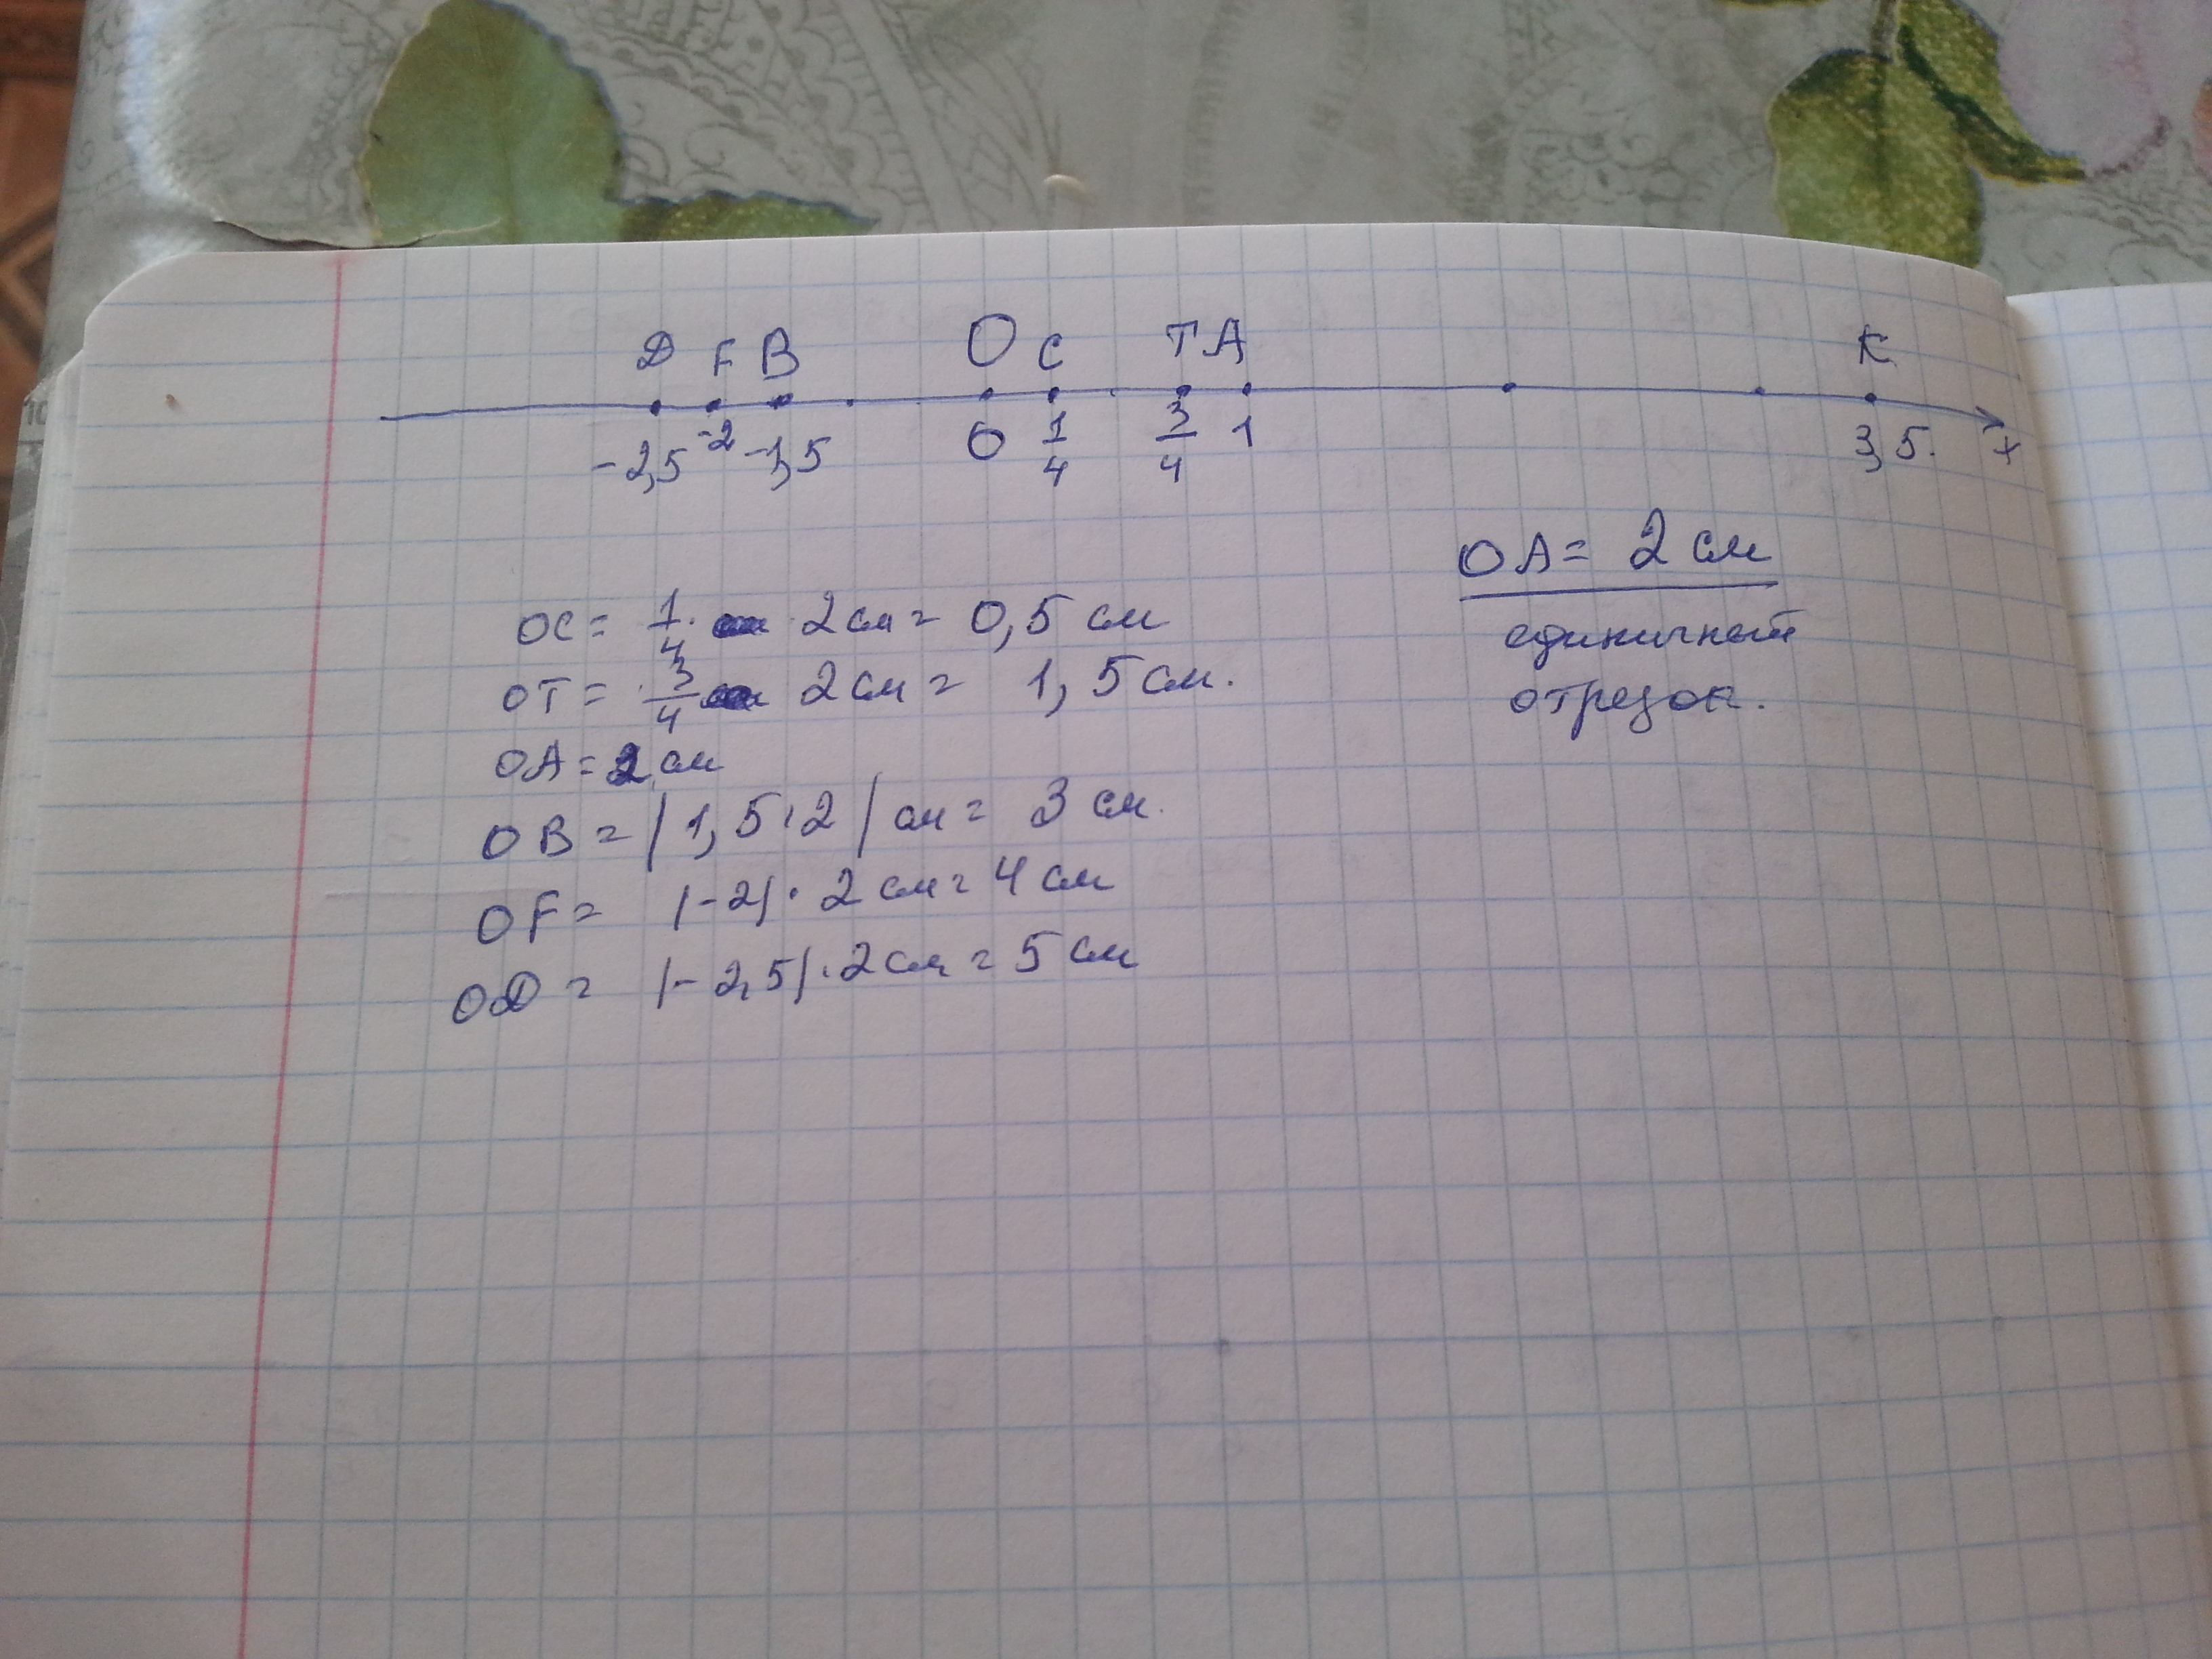 D F B O C T A K
-2,5 -2 -1,5 0 1/4 3/4 1 3,5. x
OA = 2 см
единичный
отрезок.
OC = 1/4 · 2 см = 0,5 см
OT = 3/4 2 см = 1,5 см.
OA = 2 см
OB = |1,5·2| см = 3 см.
OF = |-2| · 2 см = 4 см
OD = |-2,5| · 2 см = 5 см